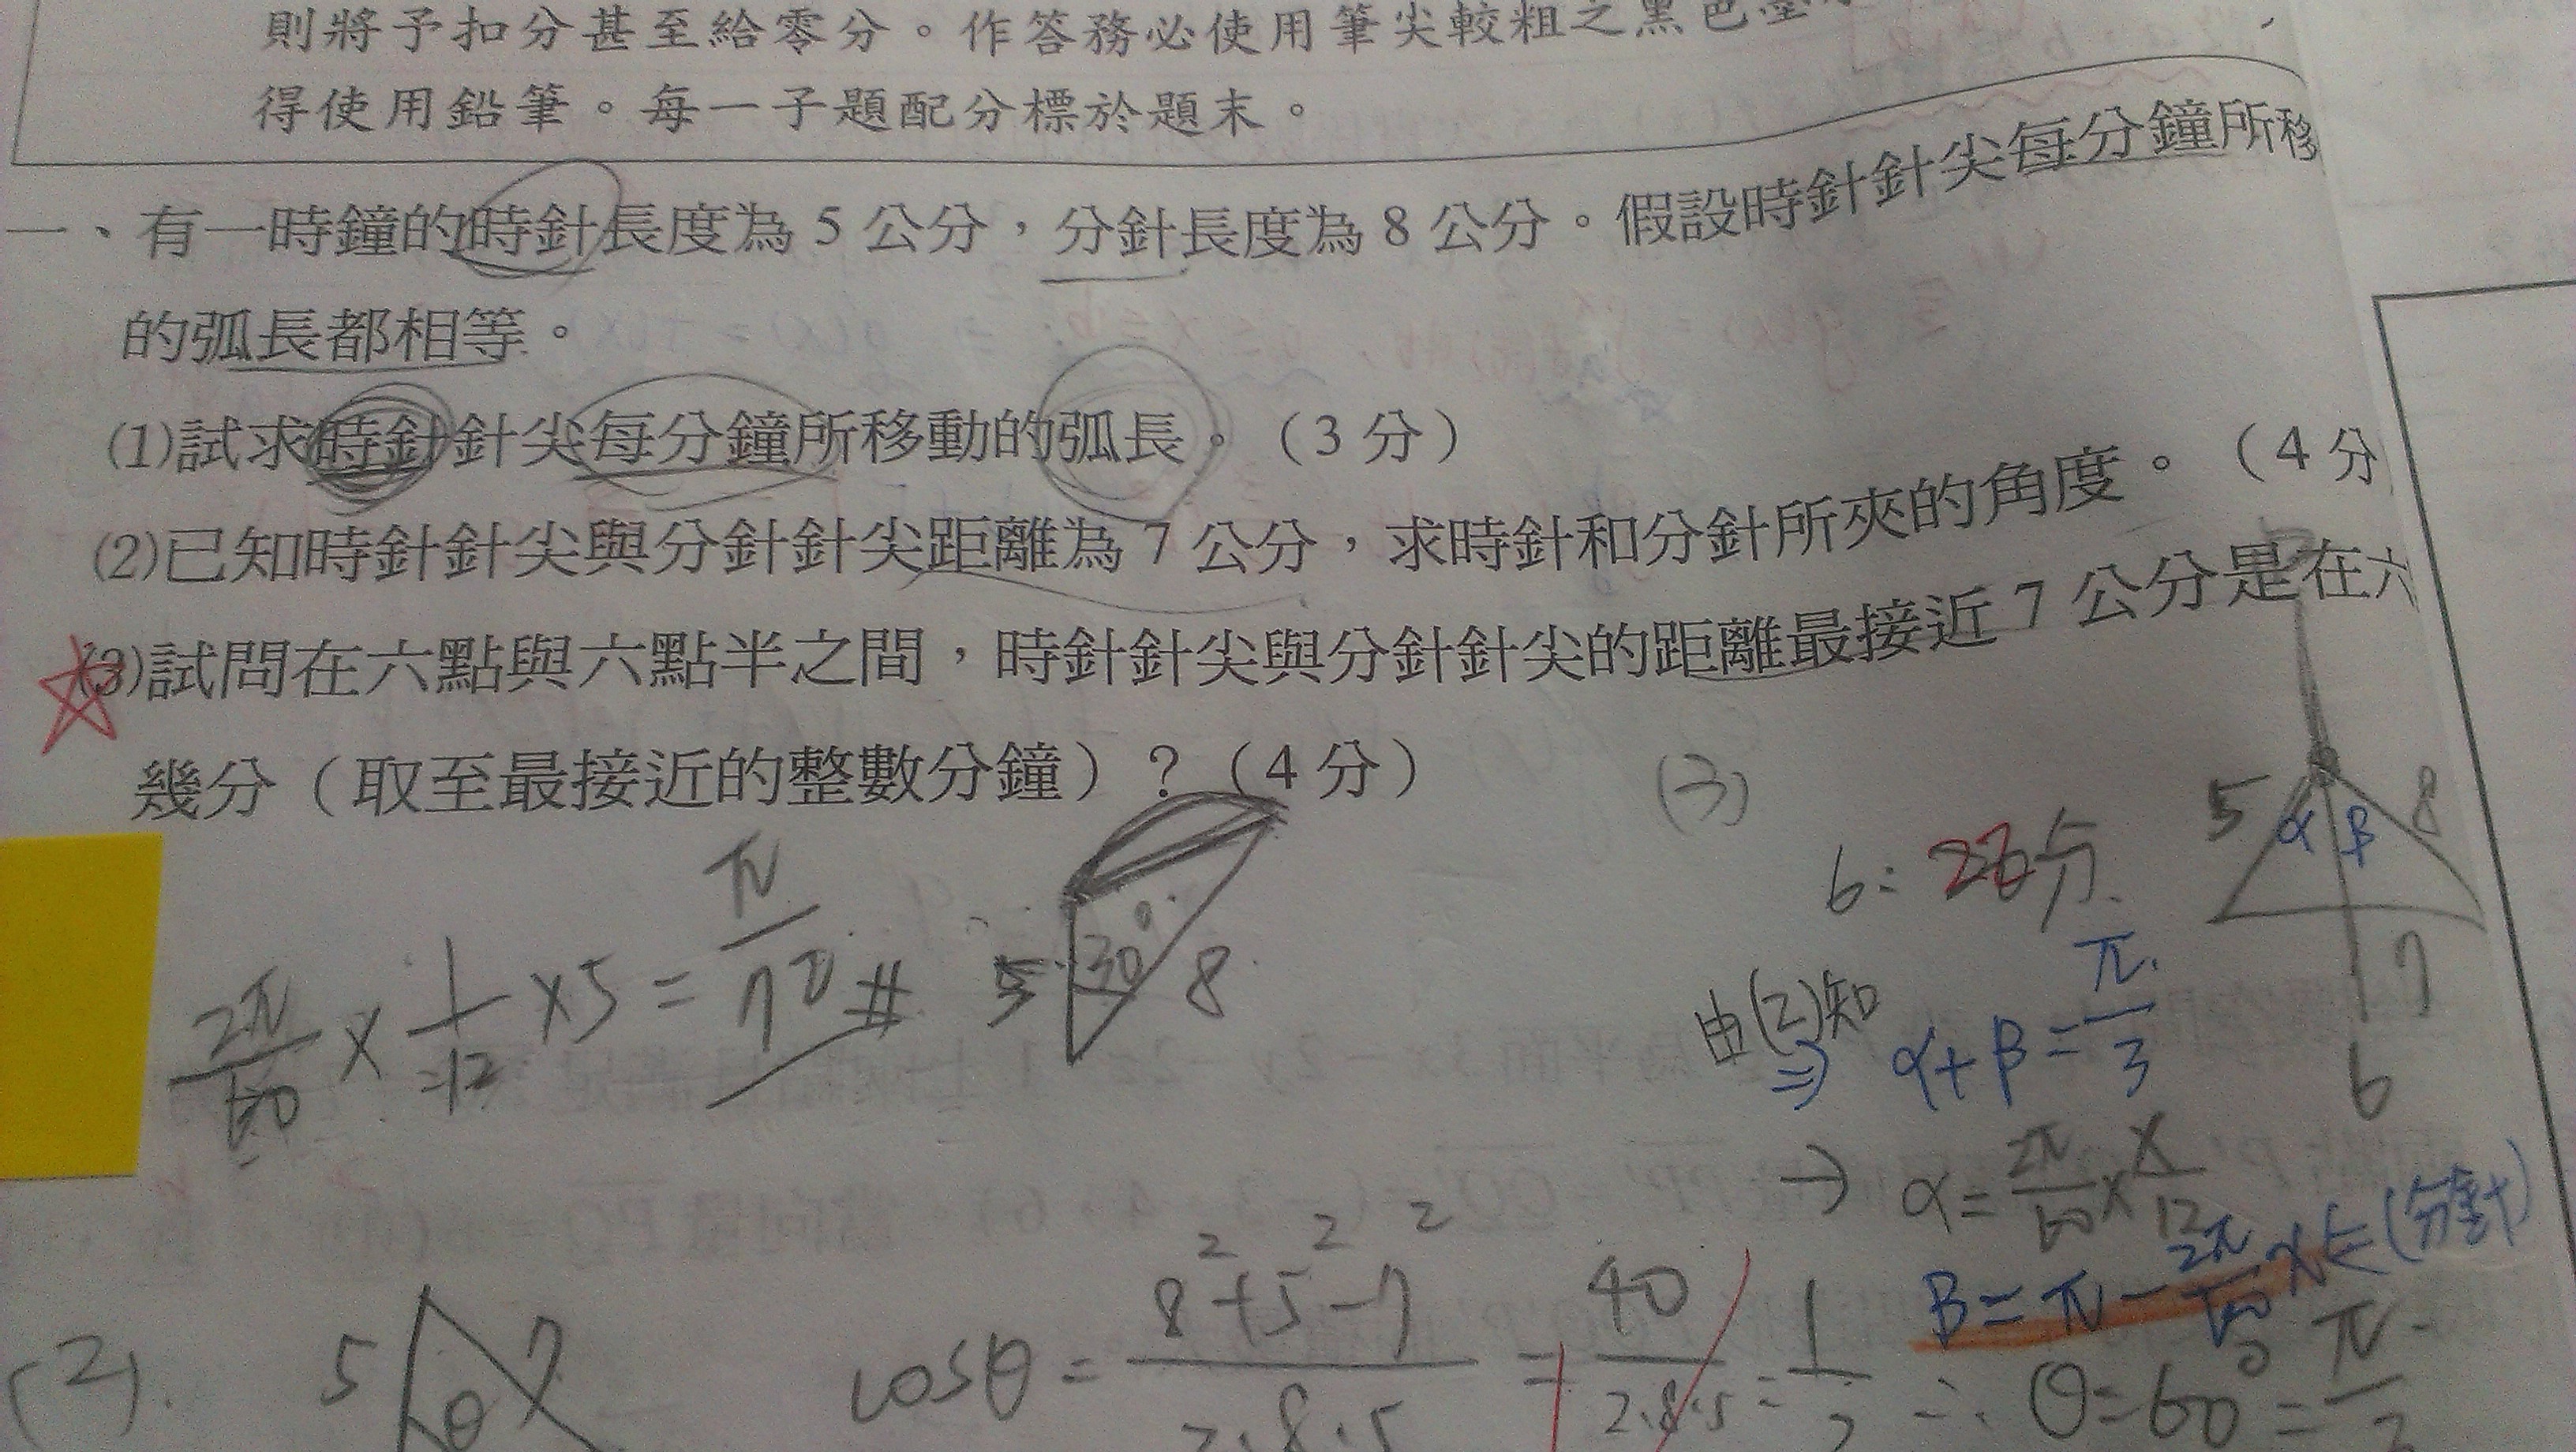 則將予扣分甚至給零分。作答務必使用筆尖較粗之黑色墨
得使用鉛筆。每一子題配分標於題末。
一、有一時鐘的時針長度為 5 公分，分針長度為 8 公分。假設時針針尖每分鐘所移
的弧長都相等。
(1)試求時針針尖每分鐘所移動的弧長。（3 分）
(2)已知時針針尖與分針針尖距離為 7 公分，求時針和分針所夾的角度。（4 分
(3)試問在六點與六點半之間，時針針尖與分針針尖的距離最接近 7 公分是在六
幾分（取至最接近的整數分鐘）？（4 分）
(3)
5 α β 8
7
6
6: 22分
2π/60 × 1/12 × 5 = π/72 #
5 30° 8
由(2)知
⇒ α+β = π/3
→ α = 2π/60 × x/12
β = π - 2π/60 x ← (分針)
(2).
5 θ 7
cosθ = 8²+5²-7²/2·8·5 = 40/2·8·5 = 1/2 ∴ θ = 60° = π/3